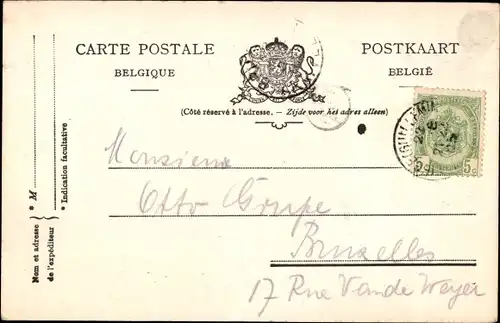 CARTE POSTALE
BELGIQUE
POSTKAART
BELGIË
(Côté réservé à l'adresse. — Zijde voor het adres alleen)
* M
Nom et adresse
de l'expéditeur
* Indication facultative
5 c
Monsieur
Otto Grupe
Bruxelles
17 Rue Van de Weyer